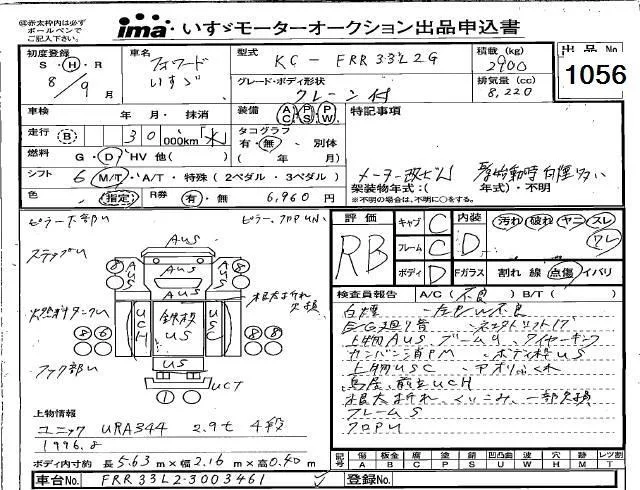 ㊟赤太枠内は必ず
ボールペンで
ご記入ください。
ima いすゞモーターオークション出品申込書
初度登録
S・H・R
8/9 月
車名
フォワード
いすゞ
型式
KC - FRR33L2G
積載 (kg)
2900
出品 No
1056
グレード・ボディ形状
クレーン付
排気量 (cc)
8,220
車検
年 月・ 抹消
装備
AC PS PW
特記事項
走行 B 30 000km
タコグラフ
有・無・ 別体
( 年 月)
燃料
G・D・HV 他( )
シフト
6 M/T・A/T・特殊 (2ペダル・3ペダル)
メーター改ざん
始動時白煙多い
架装物年式:( 年式)・不明
※不明の場合は、不明に○をする。
色
(指定)
R券
有・無 6,960 円
評価
RB
キャブ C
フレーム C
ボディ D
内装 D
Fガラス
汚れ 破れ ヤニ スレ
ワレ
割れ 線 点傷 イバリ
検査員報告
A/C( 不良 ) B/T( )
白煙
上物AUS ブームサ ワイヤーキンク
カンバン消PM ボディ枠US
上物USC アオリふくれ
鳥居、前立UCH
根太折れ、くいこみ、一部欠損
フレームS
フロPU
ピラー下部い
ピラー、フロPUい
ステップい
AUS
AUS
AUS
燃料タンクい
根太折れ
欠損
UCH
鉄板
US
USC
US
フック部い
UCT
上物情報
ユニック URA344 2.9t 4段
1996.8
ボディ内寸約 長 5.63 m×幅 2.16 m×高 0.40 m
記号 傷 板金 腐 塗 錆 凹凸曲 波 穴 跡 レツ割
A B C P S U W H M T
車台No. FRR33L2-3003461
登録No.